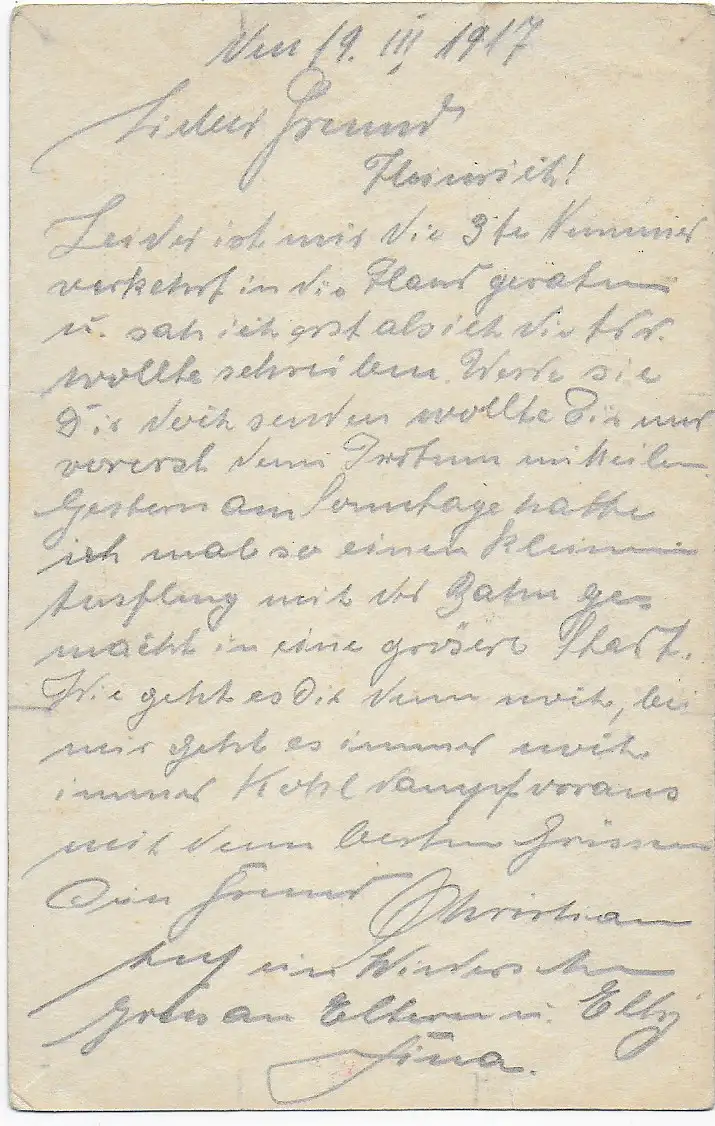 Den 19. III 1917
Lieber Freund
Heinrich!
Leider ist mir die 3te Nummer
verkehrt in die Hand geraten
u. sah ich erst als ich die Adr.
wollte schreiben. Werde sie
Dir doch senden wollte Dir nur
vorerst denn Irrtum mitteilen
Gestern am Sonntage hatte
ich mal so einen kleinen
Ausflug mit der Bahn ge-
macht in eine grösere Stadt.
Wie geht es Dir denn noch, bei
mir geht es immer noch
immer Kohldampf voraus
mit denn besten Grüssen
Dein Freund Christian
Auf ein Wiedersehen
Gruss an Eltern u.